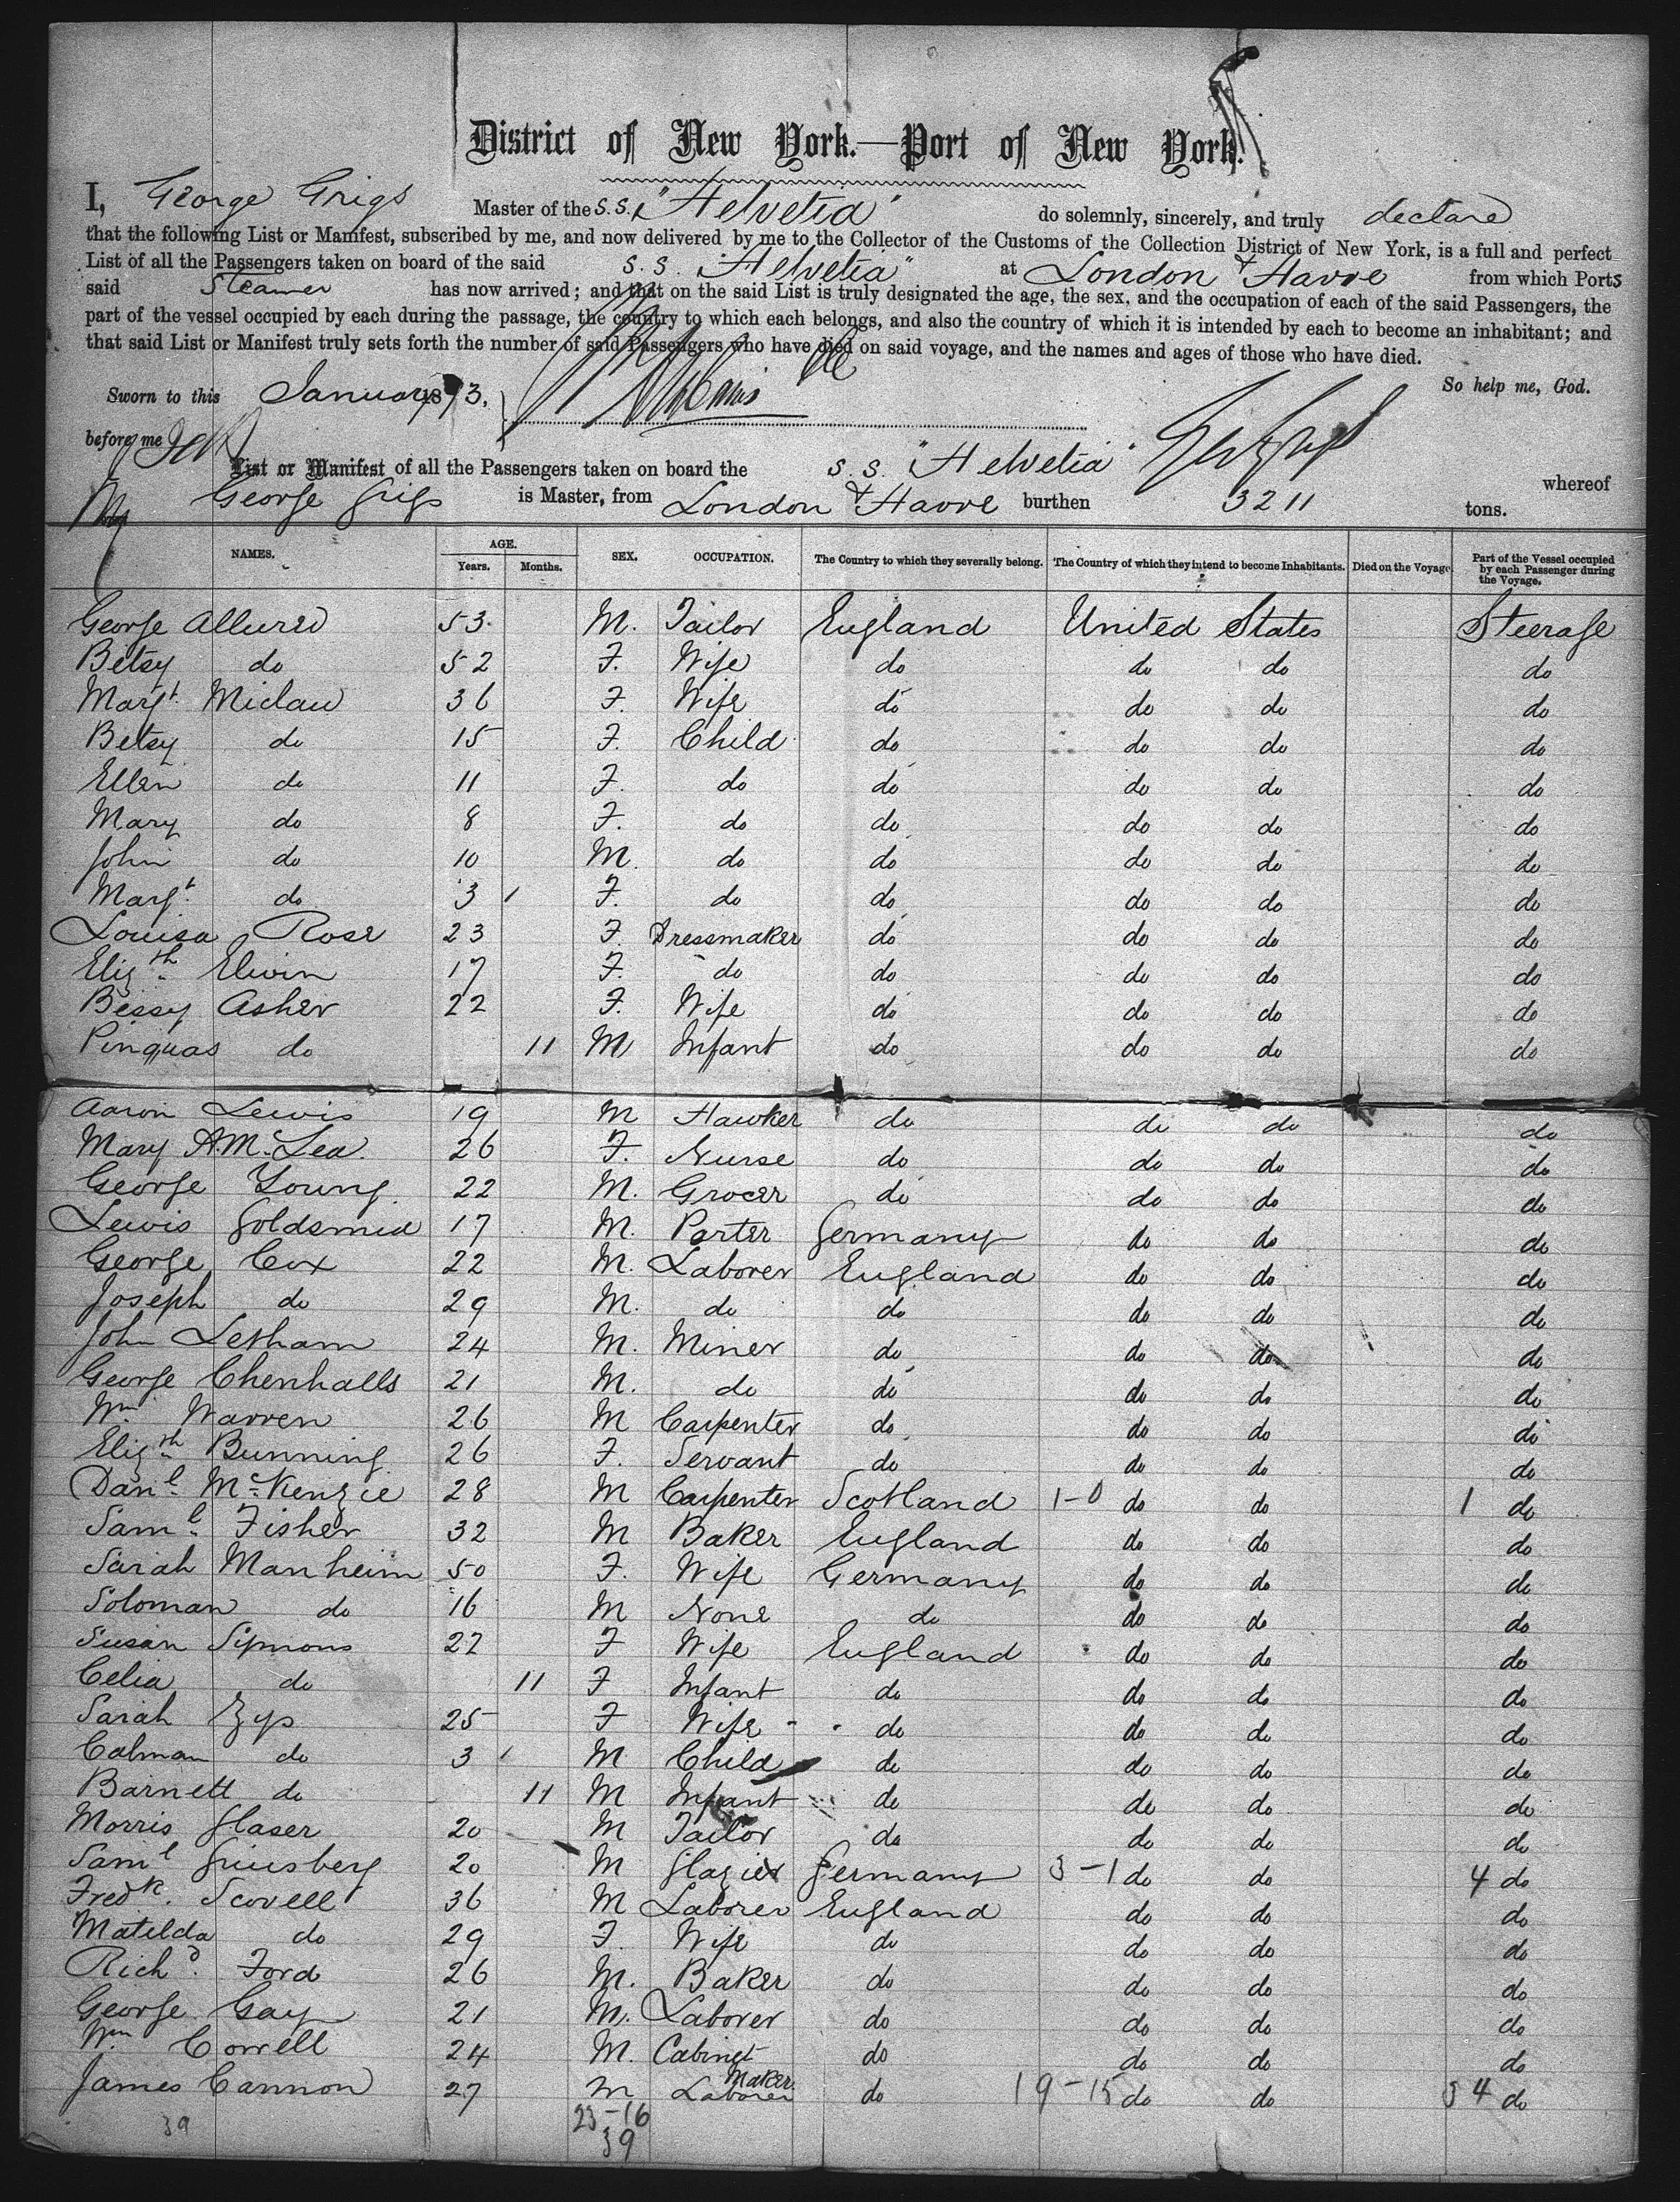 District of New York.—Port of New York.
I, George Grigs Master of the S.S. "Helvetia" do solemnly, sincerely, and truly declare
that the following List or Manifest, subscribed by me, and now delivered by me to the Collector of the Customs of the Collection District of New York, is a full and perfect
List of all the Passengers taken on board of the said S.S. "Helvetia" at London & Havre from which Ports
said Steamer has now arrived; and that on the said List is truly designated the age, the sex, and the occupation of each of the said Passengers, the
part of the vessel occupied by each during the passage, the country to which each belongs, and also the country of which it is intended by each to become an inhabitant; and
that said List or Manifest truly sets forth the number of said Passengers who have died on said voyage, and the names and ages of those who have died.
So help me, God.
Sworn to this January 1893.
before me
List or Manifest of all the Passengers taken on board the S.S. "Helvetia" whereof
George Grigs is Master, from London & Havre burthen 3211 tons.
NAMES. AGE. Years. Months. SEX. OCCUPATION. The Country to which they severally belong. The Country of which they intend to become Inhabitants. Died on the Voyage. Part of the Vessel occupied by each Passenger during the Voyage.
George Allured 53 M. Tailor England United States Steerage
Betsy do 52 F. Wife do do do do
Margt. Miclaw 36 F. Wife do do do do
Betsy do 15 F. Child do do do do
Ellen do 11 F. do do do do do
Mary do 8 F. do do do do do
John do 10 M. do do do do do
Margt. do 3 F. do do do do do
Louisa Rose 23 F. Dressmaker do do do do
Elizth Elwin 17 F. do do do do do
Bessy Asher 22 F. Wife do do do do
Pinquas do 11 M Infant do do do do
Aaron Lewis 19 M Hawker do do do do
Mary A. McLea 26 F. Nurse do do do do
George Young 22 M. Grocer do do do do
Lewis Goldsmid 17 M. Porter Germany do do do
George Cox 22 M. Laborer England do do do
Joseph do 29 M. do do do do do
John Letham 24 M. Miner do do do do
George Chenhalls 21 M. do do do do do
Wm Warren 26 M Carpenter do do do do
Elizth Bunning 26 F. Servant do do do do
Danl. McKenzie 28 M Carpenter Scotland 1-0 do do 1 do
Saml. Fisher 32 M Baker England do do do
Sarah Manheim 50 F. Wife Germany do do do
Soloman do 16 M None do do do do
Susan Simons 22 F Wife England do do do
Celia do 11 F Infant do do do do
Sarah Zys 25 F Wife do do do do
Calman do 3 M Child do do do do
Barnett do 11 M Infant do do do do
Morris Glaser 20 M Tailor do do do do
Saml Ginsberg 20 M Glazier Germany 3-1 do do 4 do
Fredk. Scovell 36 M Laborer England do do do
Matilda do 29 F. Wife do do do do
Richd. Ford 26 M. Baker do do do do
George Gay 21 M. Laborer do do do do
Wm Correll 24 M. Cabinet Maker do do do do
James Cannon 27 M Laborer do 19-15 do do 34 do
39 23-16
39